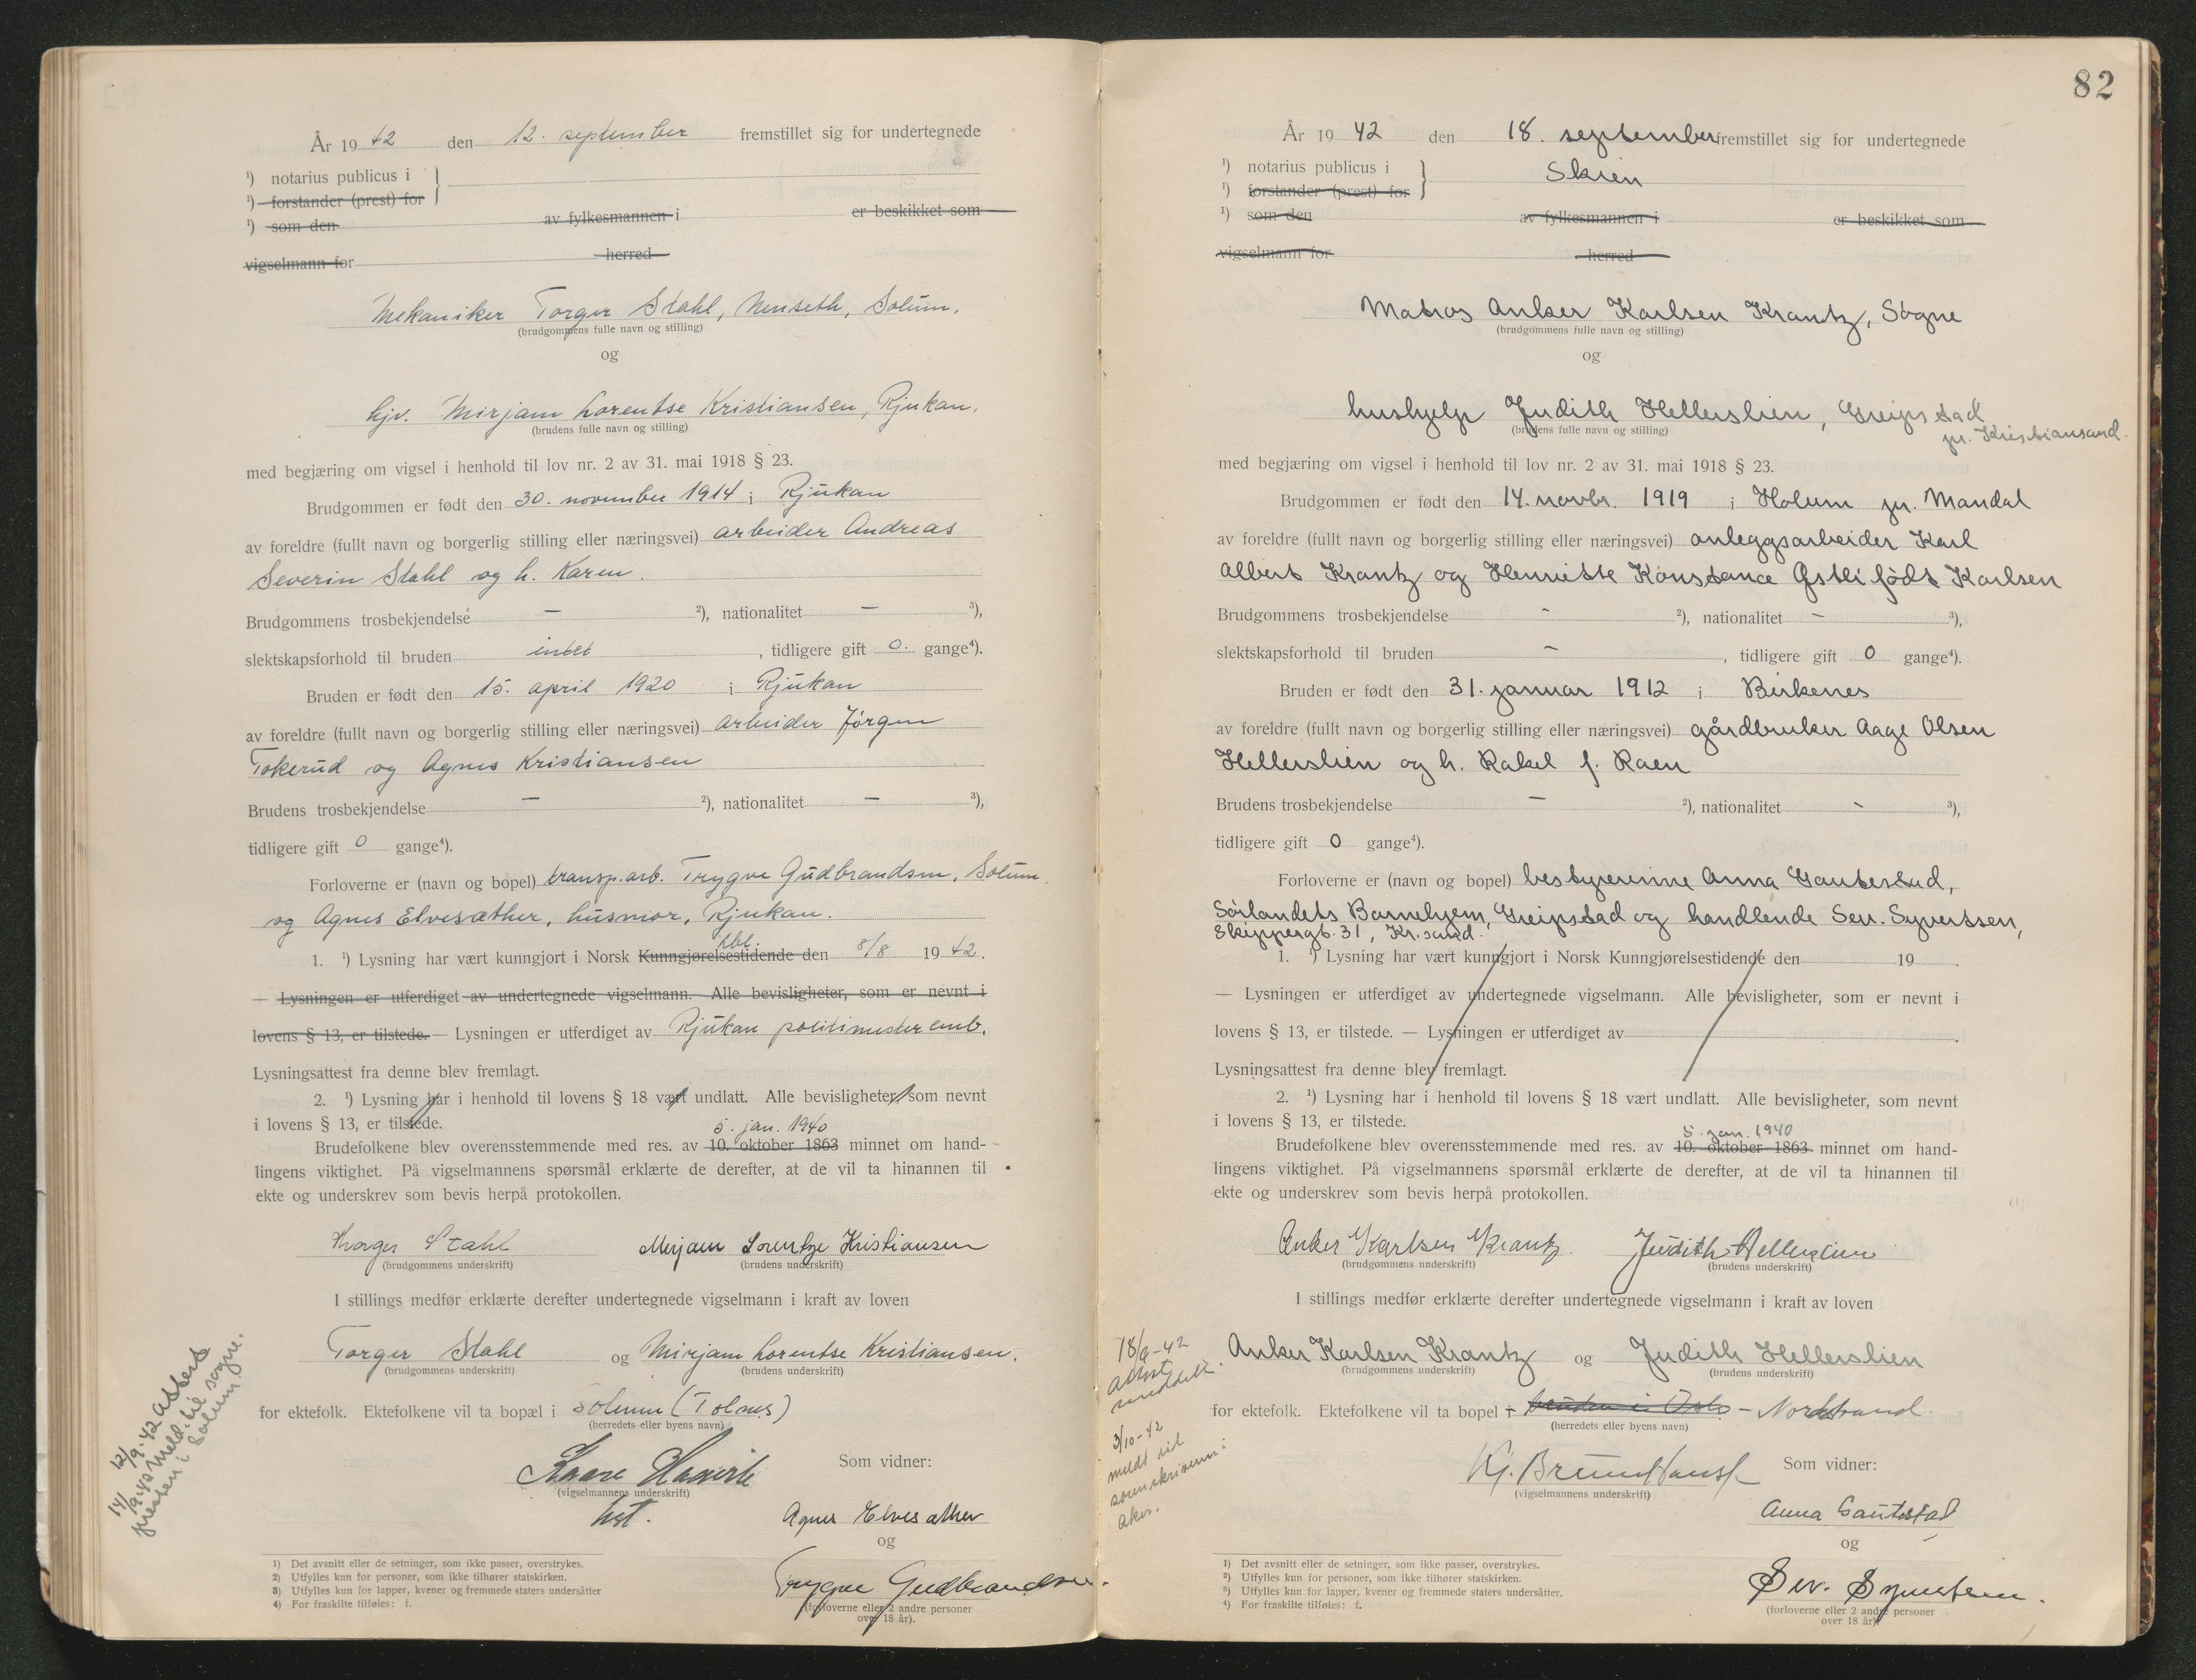 År 1942 den 12. september fremstillet sig for undertegnede
¹) notarius publicus i
¹) forstander (prest) for
¹) som den av fylkesmannen i er beskikket som
vigselmann for herred
Mekaniker Torger Stahl, Menseth, Solum.
(brudgommens fulle navn og stilling)
og
hjv. Mirjam Lorentse Kristiansen, Rjukan.
(brudens fulle navn og stilling)
med begjæring om vigsel i henhold til lov nr. 2 av 31. mai 1918 § 23.
Brudgommen er født den 30. november 1914 i Rjukan
av foreldre (fullt navn og borgerlig stilling eller næringsvei) arbeider Andreas
Severin Stahl og h. Karen.
Brudgommens trosbekjendelse — ²), nationalitet — ³),
slektskapsforhold til bruden intet, tidligere gift 0. gange⁴).
Bruden er født den 15. april 1920 i Rjukan
av foreldre (fullt navn og borgerlig stilling eller næringsvei) arbeider Jørgen
Tokerud og Agnes Kristiansen
Brudens trosbekjendelse — ²), nationalitet — ³),
tidligere gift 0 gange⁴).
Forloverne er (navn og bopel) transp.arb. Trygve Gudbrandsen, Solum.
og Agnes Elvesæther, husmor, Rjukan.
1. ¹) Lysning har vært kunngjort i Norsk Kunngjørelsestidende den 8/8 1942.
— Lysningen er utferdiget av undertegnede vigselmann. Alle bevisligheter, som er nevnt i
lovens § 13, er tilstede. — Lysningen er utferdiget av Rjukan politimester emb.
Lysningsattest fra denne blev fremlagt.
2. ¹) Lysning har i henhold til lovens § 18 vært undlatt. Alle bevisligheter, som nevnt
i lovens § 13, er tilstede.
5. jan. 1940
Brudefolkene blev overensstemmende med res. av 10. oktober 1863 minnet om hand-
lingens viktighet. På vigselmannens spørsmål erklærte de derefter, at de vil ta hinannen til
ekte og underskrev som bevis herpå protokollen.
Torger Stahl Mirjam Lorentze Kristiansen
(brudgommens underskrift) (brudens underskrift)
I stillings medfør erklærte derefter undertegnede vigselmann i kraft av loven
Torger Stahl og Mirjam Lorentse Kristiansen.
(brudgommens underskrift) (brudens underskrift)
for ektefolk. Ektefolkene vil ta bopæl i Solum (Tolnes)
(herredets eller byens navn)
Som vidner:
(vigselmannens underskrift)
Agnes Elvesæther
og
Trygve Gudbrandsen.
(forloverne eller 2 andre personer
over 18 år).
12/9-42 Attest
14/9-42 Meld. til sogne-
presten i Solum.
1) Det avsnitt eller de setninger, som ikke passer, overstrykes.
2) Utfylles kun for personer, som ikke tilhører statskirken.
3) Utfylles kun for lapper, kvener og fremmede staters undersåtter
4) For fraskilte tilføies: f.
82
År 1942 den 18. september fremstillet sig for undertegnede
¹) notarius publicus i Skien
¹) forstander (prest) for
¹) som den av fylkesmannen i er beskikket som
vigselmann for herred
Matros Anker Karlsen Krantz, Søgne
(brudgommens fulle navn og stilling)
og
hushjelp Judith Hellerslien, Greipstad
pr. Kristiansand.
(brudens fulle navn og stilling)
med begjæring om vigsel i henhold til lov nr. 2 av 31. mai 1918 § 23.
Brudgommen er født den 14. novbr. 1919 i Holum pr. Mandal
av foreldre (fullt navn og borgerlig stilling eller næringsvei) anleggsarbeider Karl
Albert Krantz og Henriette Konstance Østli født Karlsen
Brudgommens trosbekjendelse - ²), nationalitet — ³),
slektskapsforhold til bruden —, tidligere gift 0 gange⁴).
Bruden er født den 31. januar 1912 i Birkenes
av foreldre (fullt navn og borgerlig stilling eller næringsvei) gårdbruker Aage Olsen
Hellerslien og h. Rakel f. Raen
Brudens trosbekjendelse — ²), nationalitet - ³),
tidligere gift 0 gange⁴).
Forloverne er (navn og bopel) bestyrerinne Anna Gautestad,
Sørlandets Barnehjem, Greipstad og handlende Sev. Syvertsen,
Skippergt. 31, Kr.sand.
1. ¹) Lysning har vært kunngjort i Norsk Kunngjørelsestidende den 19 .
— Lysningen er utferdiget av undertegnede vigselmann. Alle bevisligheter, som er nevnt i
lovens § 13, er tilstede. — Lysningen er utferdiget av .
Lysningsattest fra denne blev fremlagt.
2. ¹) Lysning har i henhold til lovens § 18 vært undlatt. Alle bevisligheter, som nevnt
i lovens § 13, er tilstede.
5. jan. 1940
Brudefolkene blev overensstemmende med res. av 10. oktober 1863 minnet om hand-
lingens viktighet. På vigselmannens spørsmål erklærte de derefter, at de vil ta hinannen til
ekte og underskrev som bevis herpå protokollen.
Anker Karlsen Krantz. Judith Hellerslien
(brudgommens underskrift) (brudens underskrift)
I stillings medfør erklærte derefter undertegnede vigselmann i kraft av loven
Anker Karlsen Krantz og Judith Hellerslien
(brudgommens underskrift) (brudens underskrift)
for ektefolk. Ektefolkene vil ta bopel i bruden i Oslo - Nordstrand.
(herredets eller byens navn)
Som vidner:
(vigselmannens underskrift)
Anna Gautestad
og
Sev. Syvertsen.
(forloverne eller 2 andre personer
over 18 år).
18/9-42
attest
meddelt.
3/10-42
meldt til
sorenskriveren i
Aker.
1) Det avsnitt eller de setninger, som ikke passer, overstrykes.
2) Utfylles kun for personer, som ikke tilhører statskirken.
3) Utfylles kun for lapper, kvener og fremmede staters undersåtter.
4) For fraskilte tilføies: f.